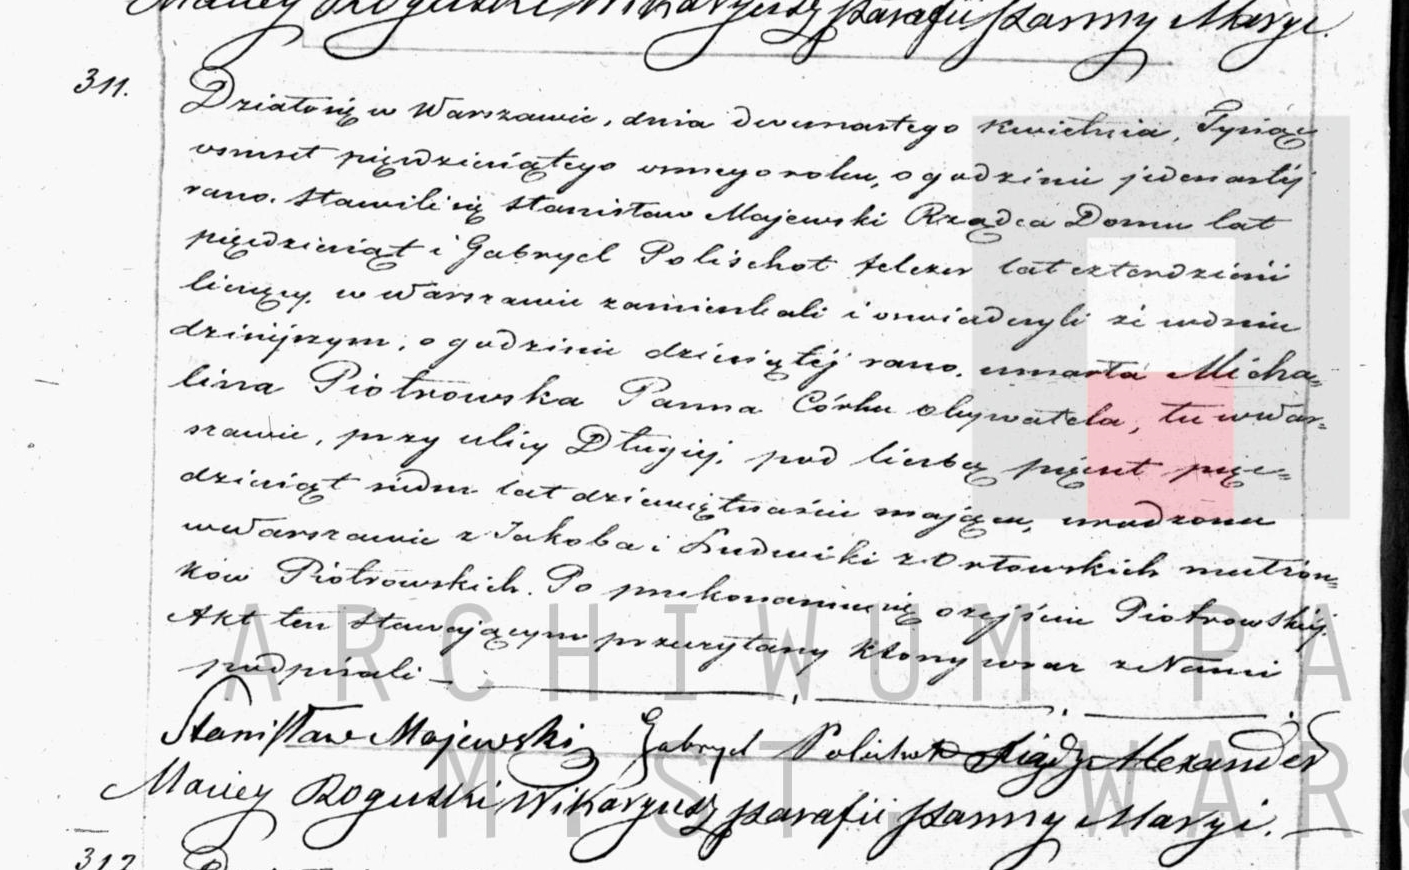 Maciey Rogulski Wikaryusz Parafii Panny Maryi.
311.
Działo się w Warszawie, dnia dwunastego Kwietnia, Tysiąc
osmset pięćdziesiątego osmego roku, o godzinie jedenastej
rano. Stawili się Stanisław Majewski Rządca Domu lat
pięćdziesiąt i Gabryel Polischot felczer lat czterdzieści
liczący, w Warszawie zamieszkali i oswiadczyli że w dniu
dzisiejszym, o godzinie dziesiątej rano, umarła Micha-
lina Piotrowska Panna Córka Obywatela, tu w War-
szawie, przy ulicy Długiej, pod liczbą pięćset pięć-
dziesiąt siedm lat dziewiętnaście mająca, urodzona
w Warszawie z Jakoba i Ludwiki z Orłowskich małżon-
ków Piotrowskich. Po przekonaniu się o zejściu Piotrowskiej,
Akt ten stawającym przeczytany który wraz z Nami
podpisali
Stanisław Majewski Gabryel Xiądz Alexander
Maciey Rogulski Wikaryusz Parafii Panny Maryi.
312
ARCHIWUM PA
M ST. WARS